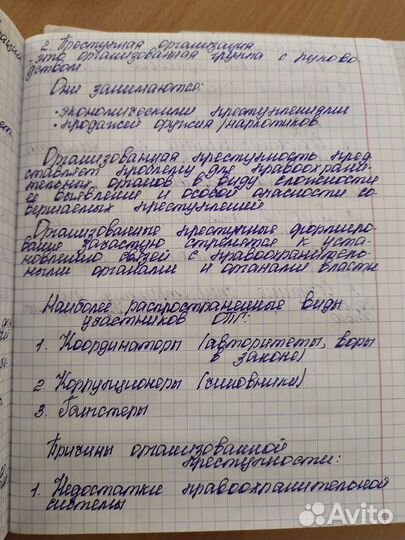 2. Преступная организация
- это организованная группа с руково-
дством.
Они занимаются:
• экономическими преступлениями
• продажей оружия/наркотиков
Организованная преступность пред-
ставляет проблему для правоохрани-
тельных органов в виду сложности
её выявления и особой опасности со-
вершаемых преступлений
Организованные преступные формиро-
вание зачастую стремятся к уста-
новлению связей с правоохранитель-
ными органами и органами власти
Наиболее распространенные виды
участников ОПГ:
1. Координаторы (авторитеты, воры
в законе)
2. Коррупционеры (чиновники)
3. Гангстеры
Причины организованной
преступности:
1. Недостатки правоохранительной
системы
Avito